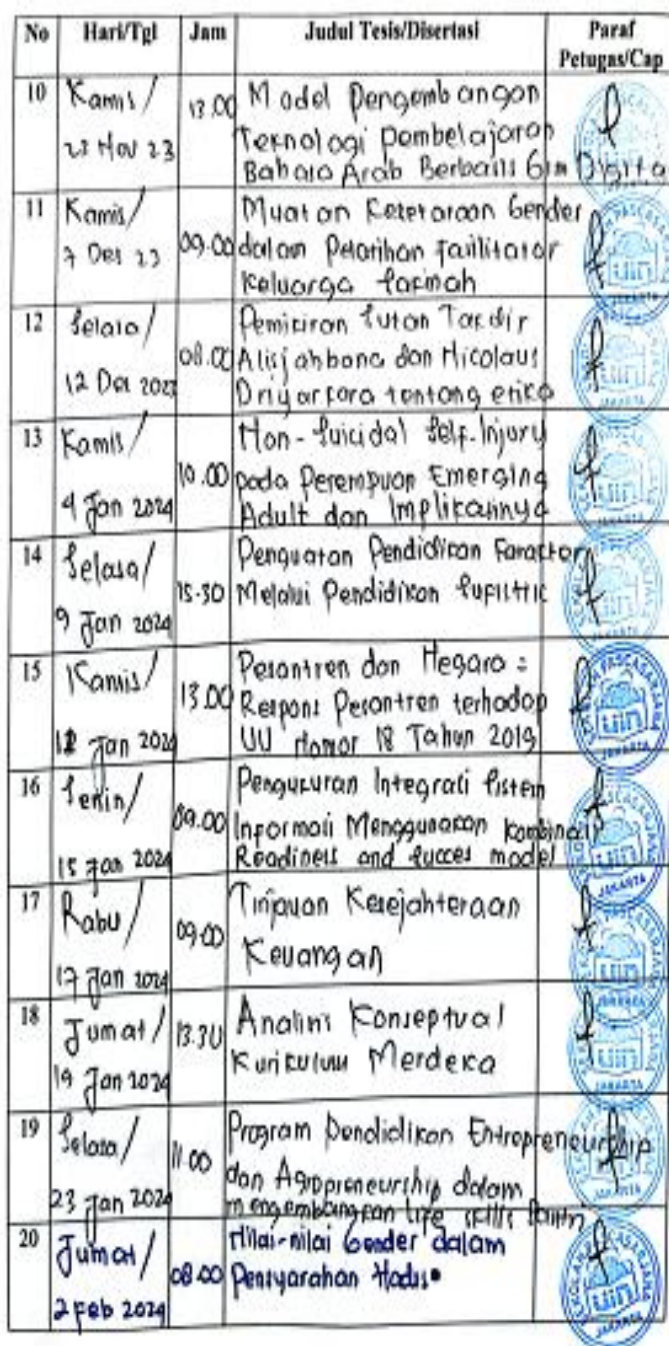 No Hari/Tgl Jam Judul Tesis/Disertasi Paraf Petugas/Cap
10 Kamis/ 23 Nov 23 13.00 Model Pengembangan
Teknologi Pembelajaran
Bahasa Arab Berbasis Gim Digital
11 Kamis/ 7 Des 23 09.00 Muatan Kesetaraan Gender
dalam Pelatihan Fasilitator
Keluarga Sakinah
12 Selasa/ 12 Des 2023 08.00 Pemikiran Sutan Takdir
Alisjahbana dan Nicolaus
Driyarkara tentang etika
13 Kamis/ 4 Jan 2024 10.00 Non-Suicidal Self-Injury
pada Perempuan Emerging
Adult dan Implikasinya
14 Selasa/ 9 Jan 2024 15.30 Penguatan Pendidikan Karakter
Melalui Pendidikan Sufistik
15 Kamis/ Jan 2024 13.00 Pesantren dan Negara :
Respons Pesantren terhadap
UU Nomor 18 Tahun 2019
16 Senin/ 15 Jan 2024 09.00 Pengukuran Integrasi Sistem
Informasi Menggunakan kombinasi
Readiness and Succes model
17 Rabu/ 17 Jan 2024 09.00 Tinjauan Kesejahteraan
Keuangan
18 Jumat/ 19 Jan 2024 13.30 Analisis Konseptual
Kurikulum Merdeka
19 Selasa/ 23 Jan 2024 11.00 Program Pendidikan Entrepreneurship
dan Agropreneurship dalam
mengembangkan life skills Santri
20 Jumat/ 2 Feb 2024 08.00 Nilai-nilai Gender dalam
Pensyarahan Hadis
UIN
JAKARTA